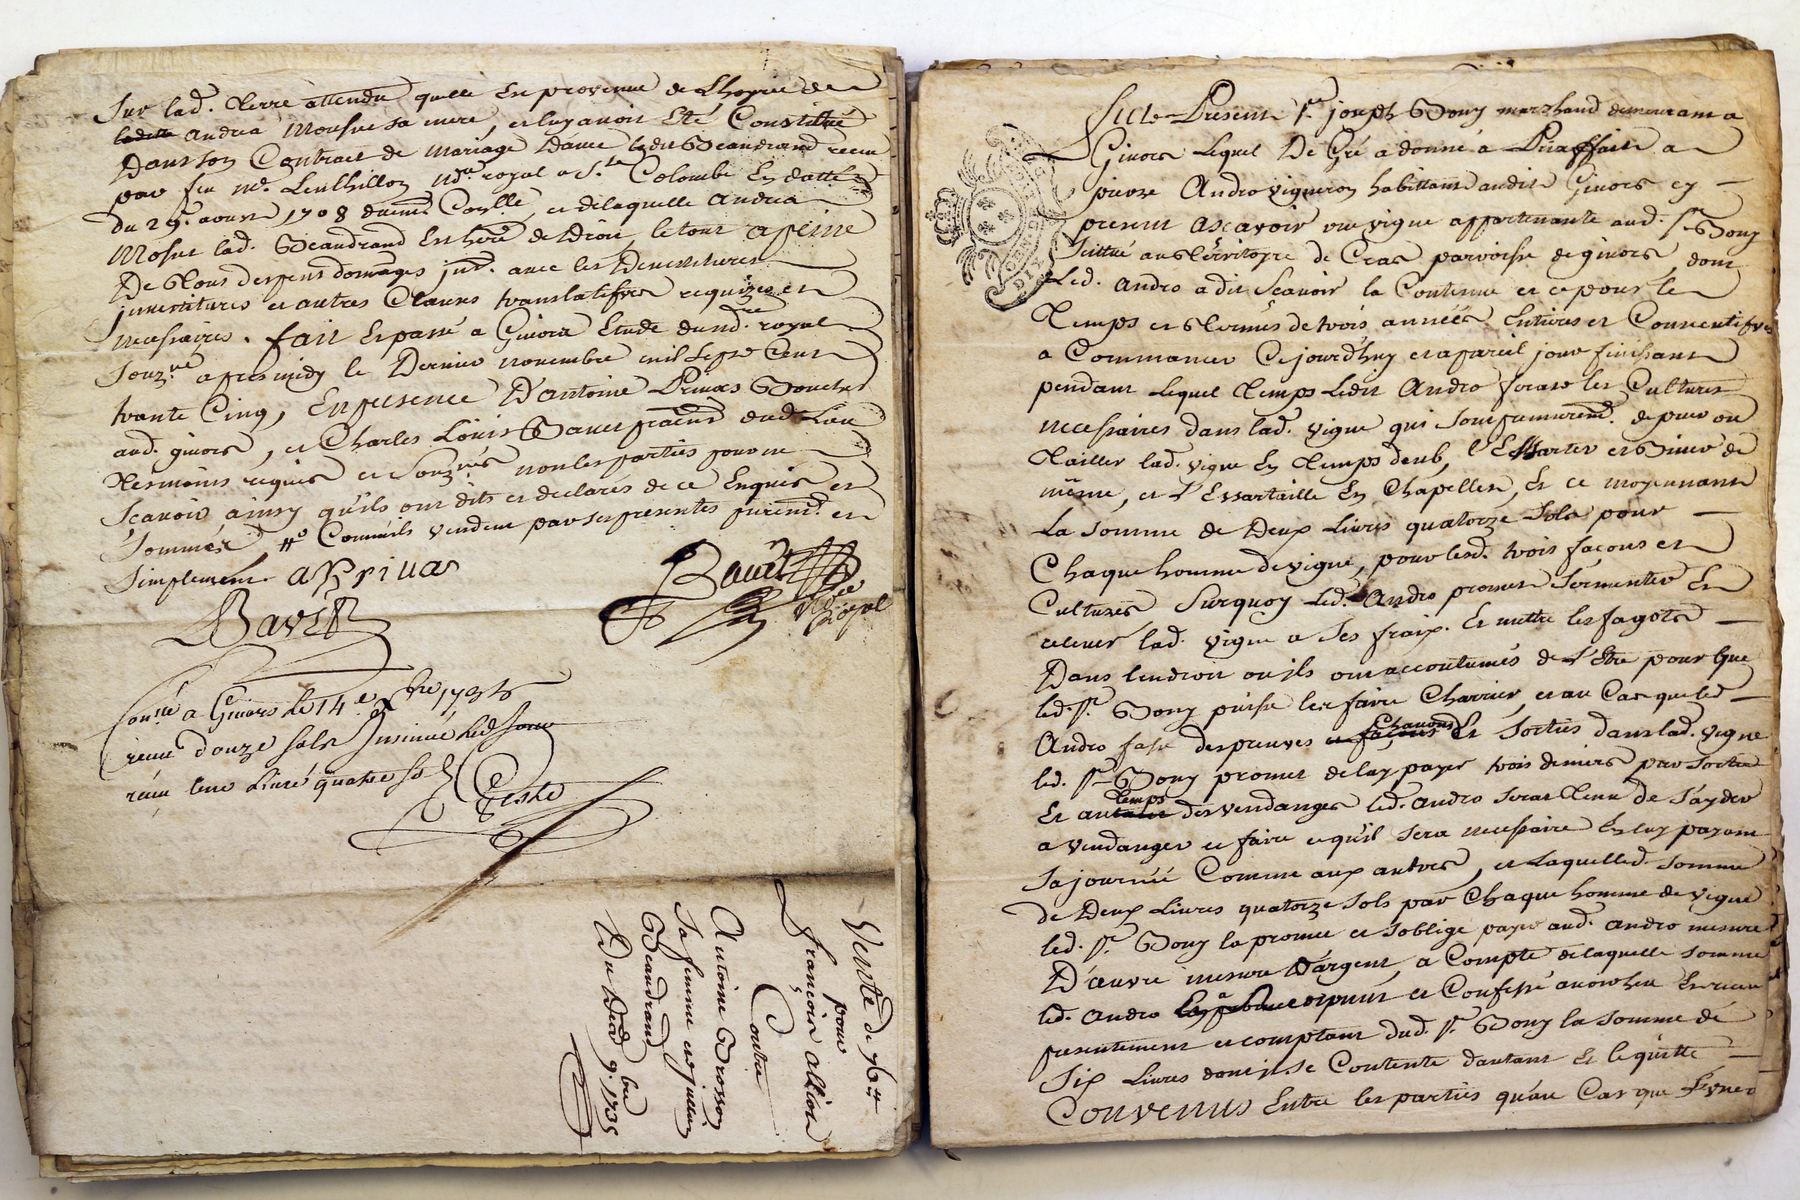 Sur lad. Terre attendu quelle Est provenue de L'hoyrie de
andrea mousne sa mere, et luy avoir Eté Constitué
Dans son Contract de mariage avec ledit Beaudrand receu
par feu me. Lenthillon nre. royal a Ste Colombe En datte
du 29e. aoust 1708 duement Conllé, et de laquelle andrea
lad. Beaudrand Est here de droit, le tout a peine
De Tous despens domages jnts. avec les Devestitures
jnvestitures et autres Clauses translatifves requizes et
necessaires. fait Et passé a Givors Etude dud. nre royal
Souzné apres midy le Dernier novembre mil sept Cent
trante Cinq, En presence D'antoine Privas Boucher
aud. givors, et Charles Louis Bavet praticn dud. Lieu
Tesmoins requis et Souznés non les parties pour ne
Scavoir ainsy qu'ils ont dits et declarés de ce Enquis et
Sommés, Comme ils vendent par ses presentes purement. et
Simplement a Privas
Bavet
Bavet
Nre
Royal
Conlé a Givors le 14e xbre 1735
receu douze sols Insinué led jour
receu une Livre quatre sols
Teste
Vente de 76 ₶
pour
françois allion
Contre
Antoine Brosson
Sa femme et jullien
Beaudrand
Du Dernd 9bre 1735
DIX DEN
Sieur Present Sr. joseph Bony marchand demeurant a
Givors Lequel De Gré a donné a Prixffait a
pierre Andro vigneron habittant audit Givors cy
present ascavoir une vigne appartenante aud. Sr. Bony
Scittué au Territoyre de Cras parroisse de givors, dont
Led. Andro a dit Scavoir la Contenue et ce pour le
Temps et Termes de trois années Entieres et Consecutifves
a Commancer Cejourdhuy et a pareil jour finissant
pendant lequel Temps Ledit Andro feras les Cultures
necessaires dans lad. vigne qui sont purement. de
Tailler lad. vigne En Temps deub, l'Essarter et Biner de
même, et l'Essartaille En Chapelles, Et ce moyennant
La somme de Deux Livres quatorze Sols pour
Chaque homme de vigne, pour lesd. trois façons et
Cultures Surquoy Led. Andro promet Sermenter Et
relever lad. vigne a Ses fraix. Et mettre les fagots
Dans lendroit ou ils ont accoutumés de l'Etre pour que
led. Sr. Bony puisse les faire Charrier, et au Cas que led
Andro fasse des preuves et façons Chavons Et Sorties dans lad. vigne
led. Sr. Bony promet de luy payer trois deniers par Sortie
Et au temps des vendanges led. andro seras Tenu de S'ayder
a vendanger et faire ce qu'il sera necessaire En luy payant
Sa journée Comme aux autres, et Laquelle d. Somme
de Deux Livres quatorze Sols par Chaque homme de vigne
led. Sr. Bony la promet et soblige payer aud. andro mesure
D'œuvre mesure D'argent, a Compte de laquelle somme
led. andro a et Confessé avoir heu Et receu
presentement et comptant dud. Sr. Bony la Somme de
Six Livres dont il se Contente dautant Et le quitte
CONVENUS Entre les parties qu'au Cas que